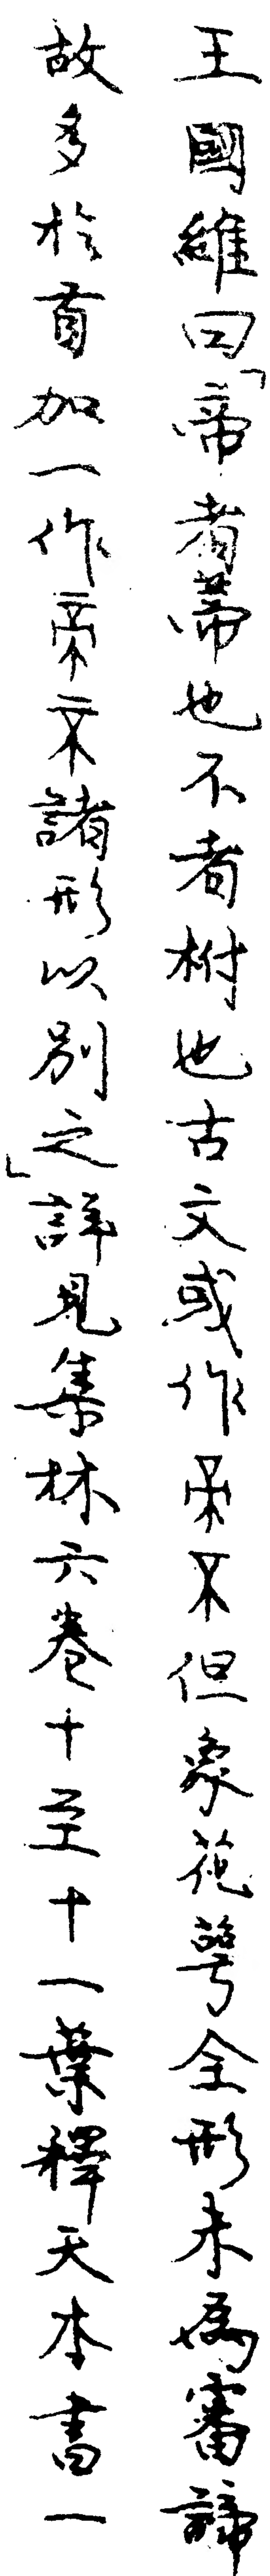 王國維曰「帝者蒂也不者柎也古文或作𠂹不但象花萼全形未為審諦
故多於首加一作帝不諸形以別之」詳見集林六卷十至十一葉釋天本書一